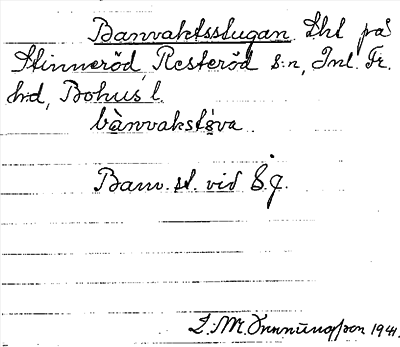 Banvaktsstugan. Lht på
Stinneröd, Resteröd s:n, Inl. Fr.
hd, Bohus l.
bànvakstéva
Banv. st. vid S.J.
1941.